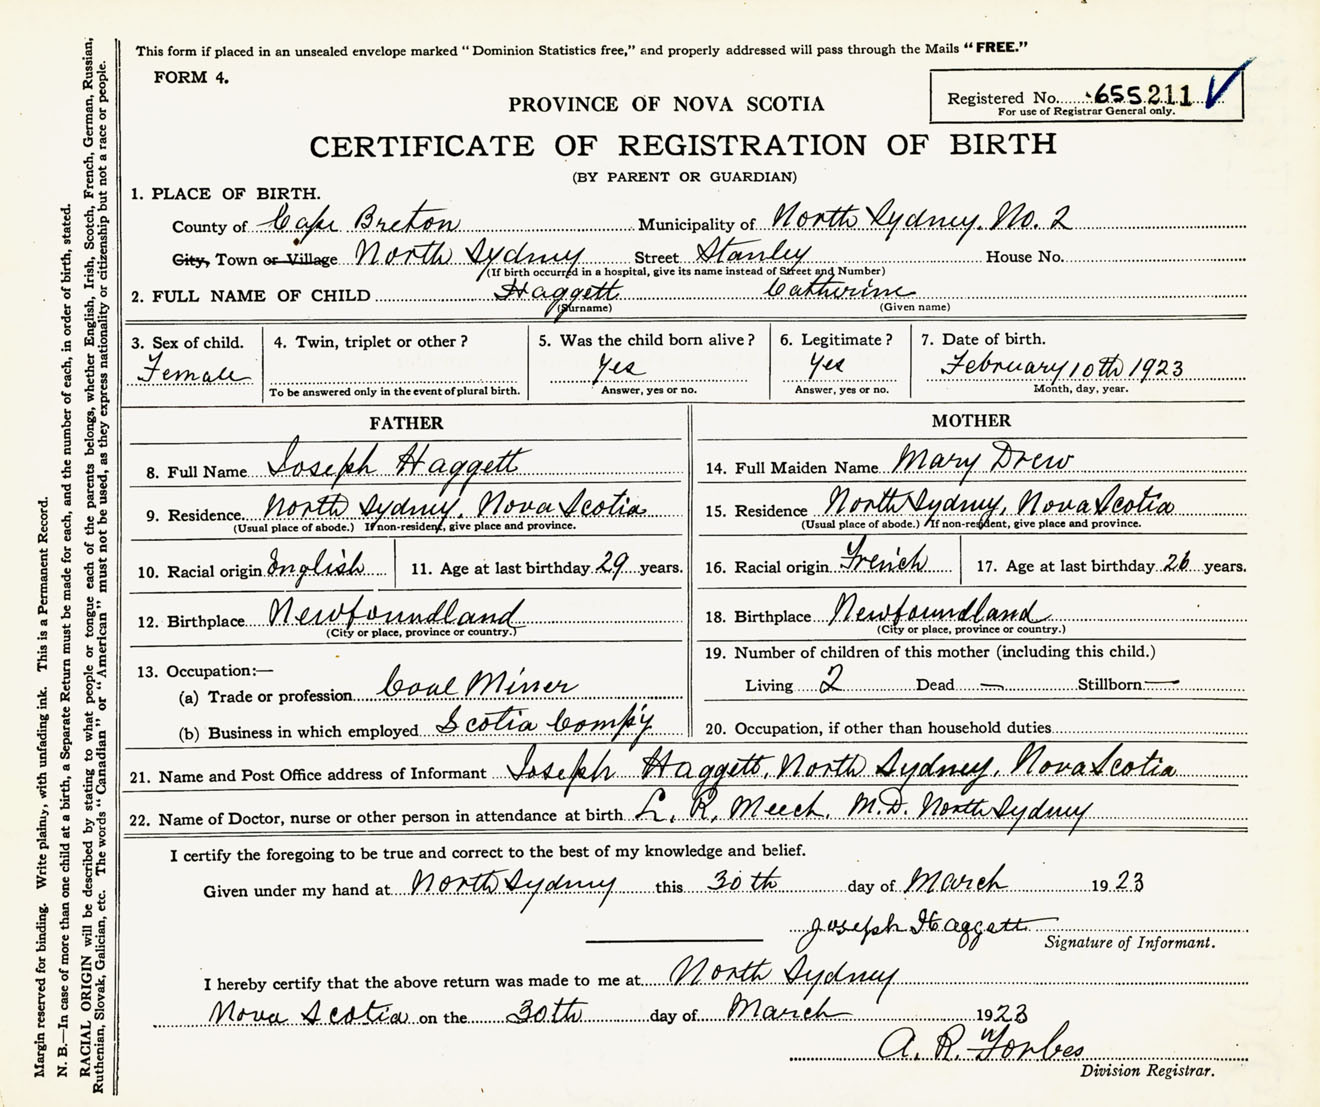 This form if placed in an unsealed envelope marked "Dominion Statistics free," and properly addressed will pass through the Mails "FREE."
FORM 4.
Registered No. 655211
For use of Registrar General only.
PROVINCE OF NOVA SCOTIA
CERTIFICATE OF REGISTRATION OF BIRTH
(BY PARENT OR GUARDIAN)
1. PLACE OF BIRTH.
County of Cape Breton Municipality of North Sydney. No. 2
City, Town or Village North Sydney Street Stanley House No.
(If birth occurred in a hospital, give its name instead of Street and Number)
2. FULL NAME OF CHILD Haggett Catherine
(Surname) (Given name)
3. Sex of child. 4. Twin, triplet or other? 5. Was the child born alive? 6. Legitimate? 7. Date of birth.
Female Yes Yes February 10th 1923
To be answered only in the event of plural birth. Answer, yes or no. Answer, yes or no. Month, day, year.
FATHER
8. Full Name Joseph Haggett
9. Residence North Sydney, Nova Scotia
(Usual place of abode.) If non-resident, give place and province.
10. Racial origin English 11. Age at last birthday 29 years.
12. Birthplace Newfoundland
(City or place, province or country.)
13. Occupation:—
(a) Trade or profession Coal Miner
(b) Business in which employed Scotia Comp'y
MOTHER
14. Full Maiden Name Mary Drew
15. Residence North Sydney, Nova Scotia
(Usual place of abode.) If non-resident, give place and province.
16. Racial origin French 17. Age at last birthday 26 years.
18. Birthplace Newfoundland
(City or place, province or country.)
19. Number of children of this mother (including this child.)
Living 2 Dead — Stillborn —
20. Occupation, if other than household duties
21. Name and Post Office address of Informant Joseph Haggett, North Sydney, Nova Scotia
22. Name of Doctor, nurse or other person in attendance at birth L. R. Meech. M.D. North Sydney
I certify the foregoing to be true and correct to the best of my knowledge and belief.
Given under my hand at North Sydney this 30th day of March 1923
Joseph Haggett
Signature of Informant.
I hereby certify that the above return was made to me at North Sydney
Nova Scotia on the 30th day of March 1923
A. R. Forbes
Division Registrar.
Margin reserved for binding. Write plainly, with unfading ink. This is a Permanent Record.
N. B.—In case of more than one child at a birth, a Separate Return must be made for each, and the number of each, in order of birth, stated.
RACIAL ORIGIN will be described by stating to what people or tongue each of the parents belongs, whether English, Irish, Scotch, French, German, Russian,
Ruthenian, Slovak, Galician, etc. The words "Canadian" or "American" must not be used, as they express nationality or citizenship but not a race or people.